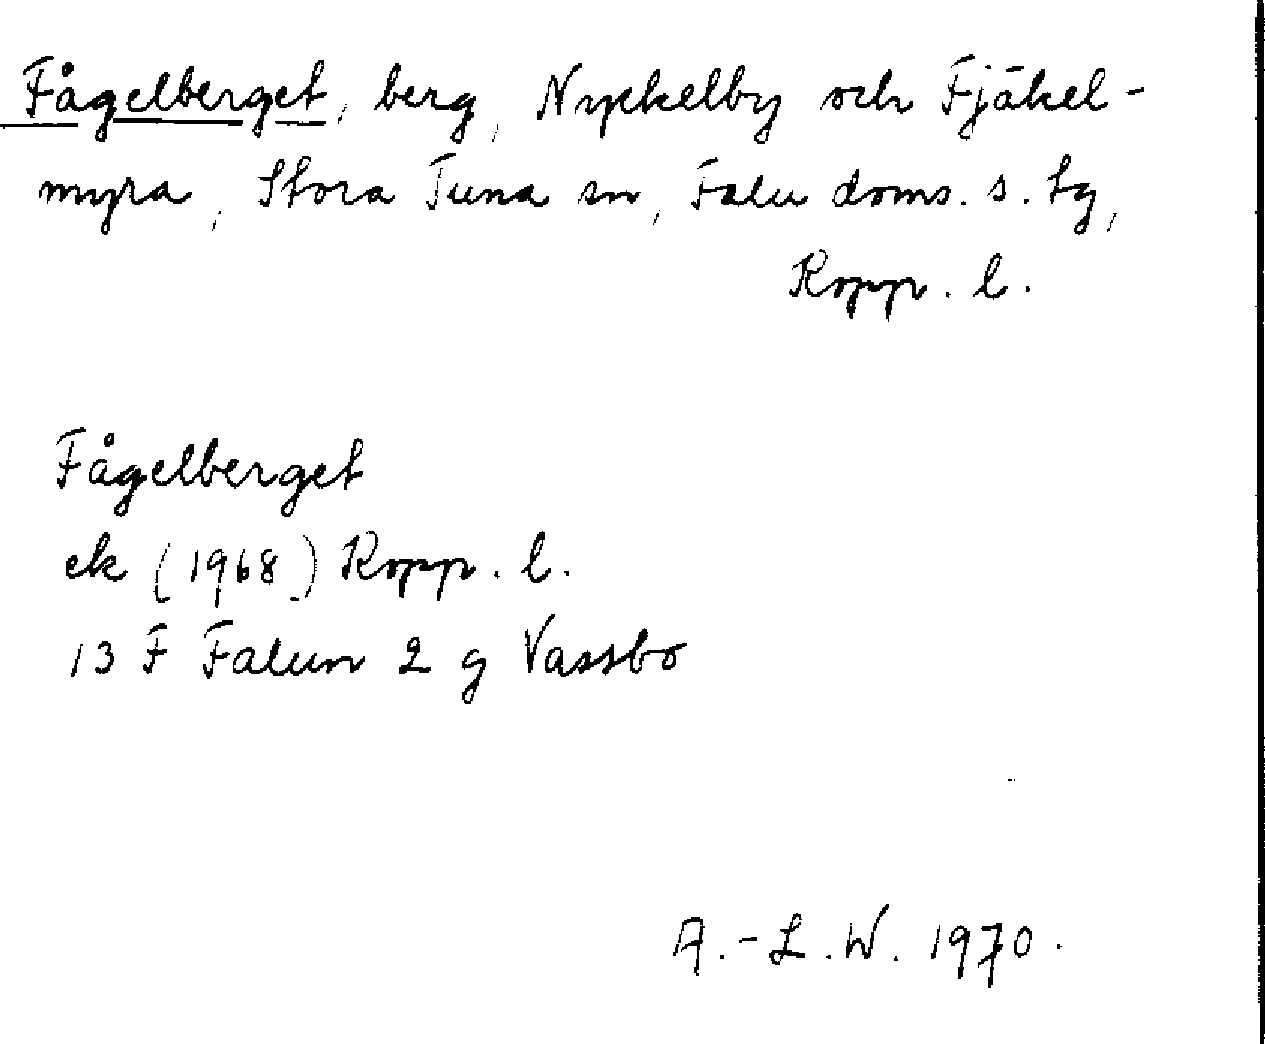 Fågelberget, berg, Nyckelby och Fjäkel-
myra, Stora Tuna sn, Falu doms. s. tg,
Kopp. l.
Fågelberget
ek (1968) Kopp. l.
13 F Falun 2 g Vassbo
A.-L.W. 1970.